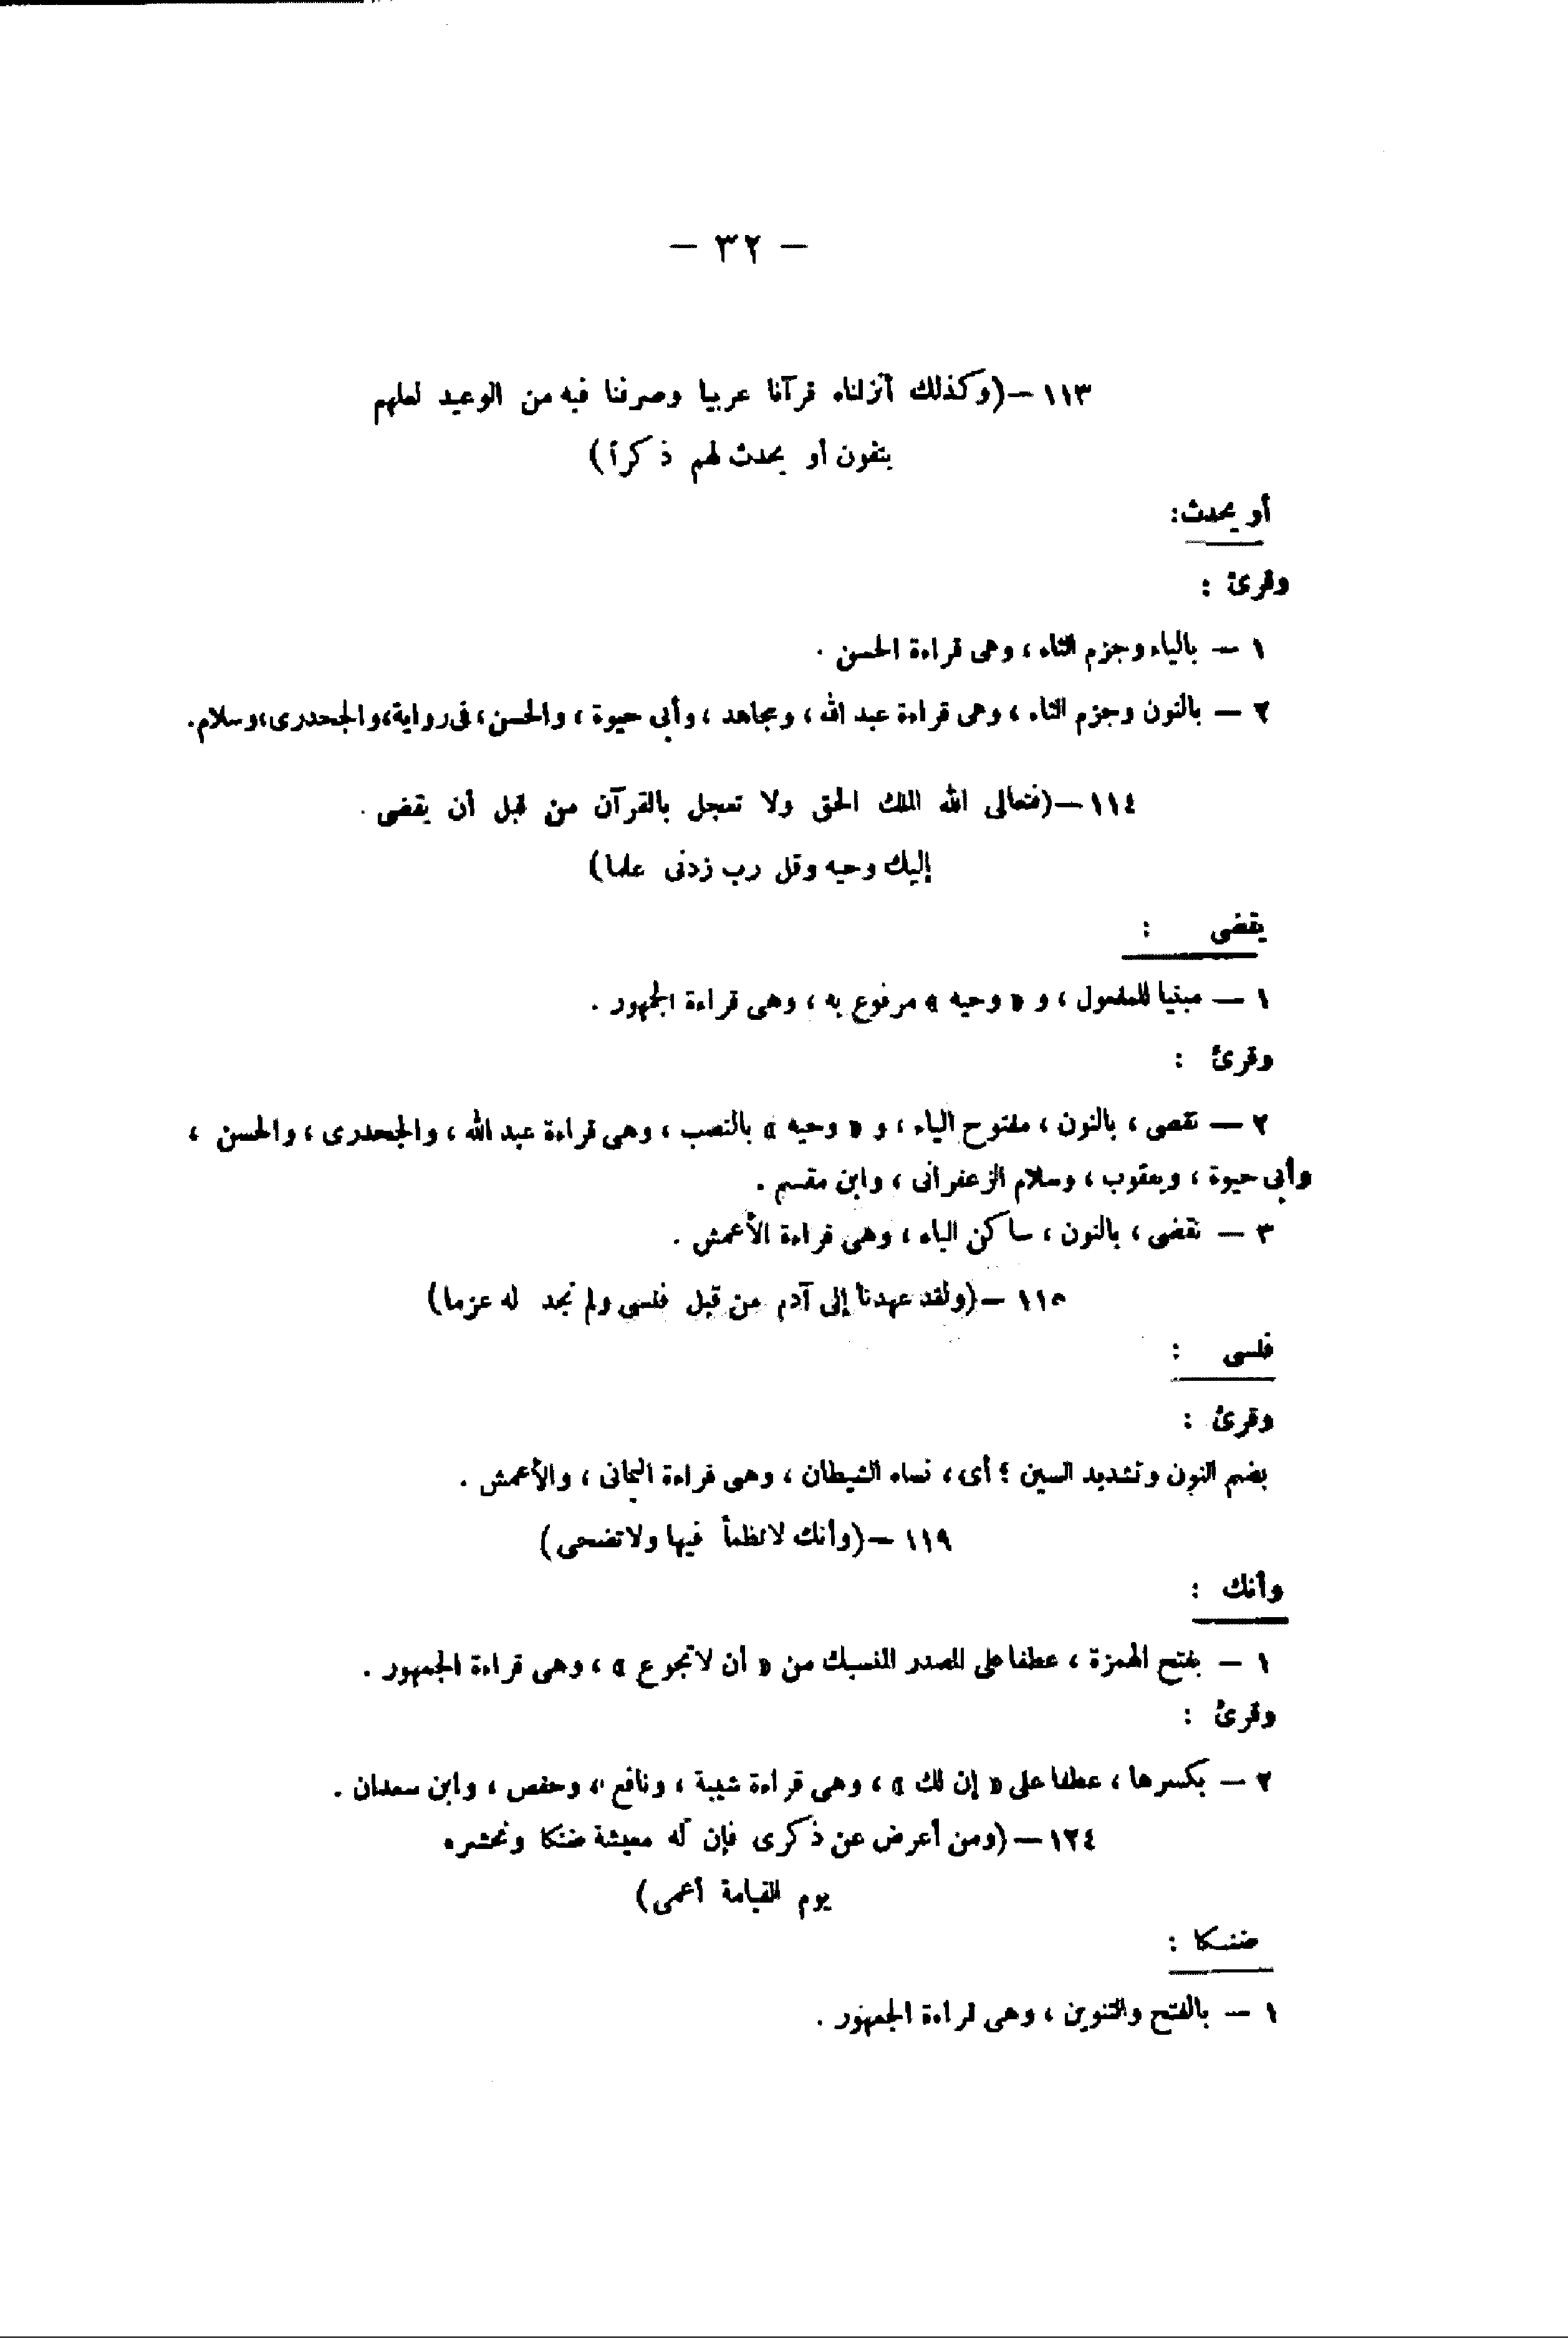 — ٣٢ —
١١٣ — (وكذلك أنزلناه قرآنا عربيا وصرفنا فيه من الوعيد لعلهم
يتقون أو يحدث لهم ذكرأ)
أو يحدث:
وقرئ :
١ — بالياء وجزم الثاء ، وهى قراءة الحسن .
٢ — بالنون وجزم الثاء ، وهى قراءة عبد الله ، ومجاهد ، وأبى حيوة ، والحسن ، فى رواية ، والجحدرى ، وسلام .
١١٤ — (فتعالى الله الملك الحق ولا تعجل بالقرآن من قبل أن يقضى .
إليك وحيه وقل رب زدنى علما)
يقضى :
١ — مبنيا للمفعول ، و « وحيه » مرفوع به ، وهى قراءة الجمهور .
وقرئ :
٢ — نقضى ، بالنون ، مفتوح الياء ، و « وحيه » بالنصب ، وهى قراءة عبد الله ، والجحدرى ، والحسن ،
وأبى حيوة ، ويعقوب ، وسلام الزعفرانى ، وابن مقسم .
٣ — نقضى ، بالنون ، ساكن الياء ، وهى قراءة الأعمش .
١١٥ — (ولقد عهدنا إلى آدم من قبل فنسى ولم نجد له عزما)
فنسى :
وقرئ :
بضم النون وتشديد السين ؛ أى ، نساه الشيطان ، وهى قراءة اليمانى ، والأعمش .
١١٩ — (وأنك لا تظمأ فيها ولا تضحى)
وأنك :
١ — بفتح الهمزة ، عطفا على المصدر المنسبك من « أن لا تجوع » ، وهى قراءة الجمهور .
وقرئ :
٢ — بكسرها ، عطفا على « إن لك » ، وهى قراءة شيبة ، ونافع ، وحفص ، وابن سعدان .
١٢٤ — (ومن أعرض عن ذكرى فإن له معيشة ضنكا ونحشره
يوم القيامة أعمى)
ضنكا :
١ — بالفتح والتنوين ، وهى قراءة الجمهور .